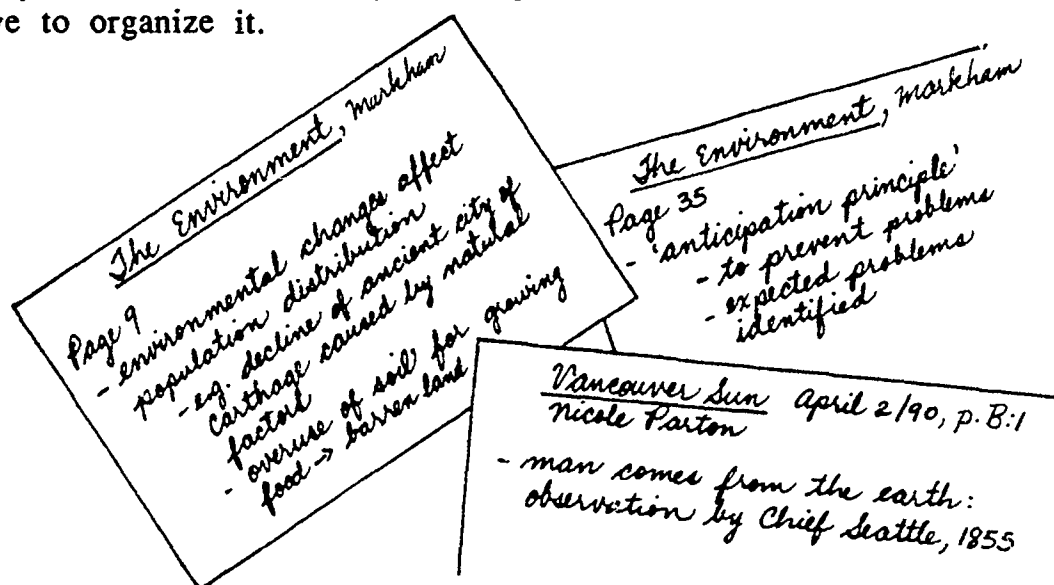 ve to organize it.
The Environment, Markham
Page 9
- environmental changes affect
population distribution
- e.g. decline of ancient city of
Carthage caused by natural
factors
- overuse of soil for growing
food → barren land
The Environment, Markham
Page 35
- 'anticipation principle'
- to prevent problems
- expected problems
identified
Vancouver Sun April 2/90, p. B:1
Nicole Parton
- man comes from the earth:
observation by Chief Seattle, 1855